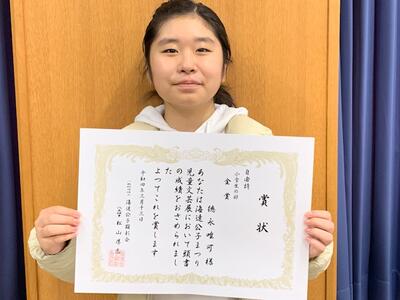 賞状
自由詩
小学生の部
金賞
徳永唯可様
あなたは海達公子まつり
児童文芸展において頭書
の成績をおさめられまし
た
よってこれを賞します
令和四年三月十三日
海達公子顕彰会
会長 松山厚志